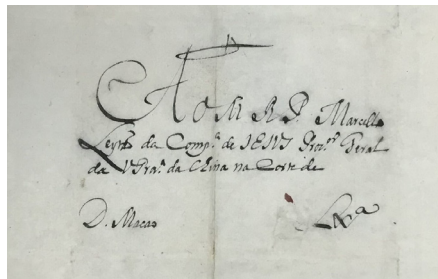 Ao M R P. Marcello
Leytaõ da Comp.ª de JESUS Proc.ᵒʳ Geral
da V. Pra.ª da China na Corte de
D. Macao Lxª